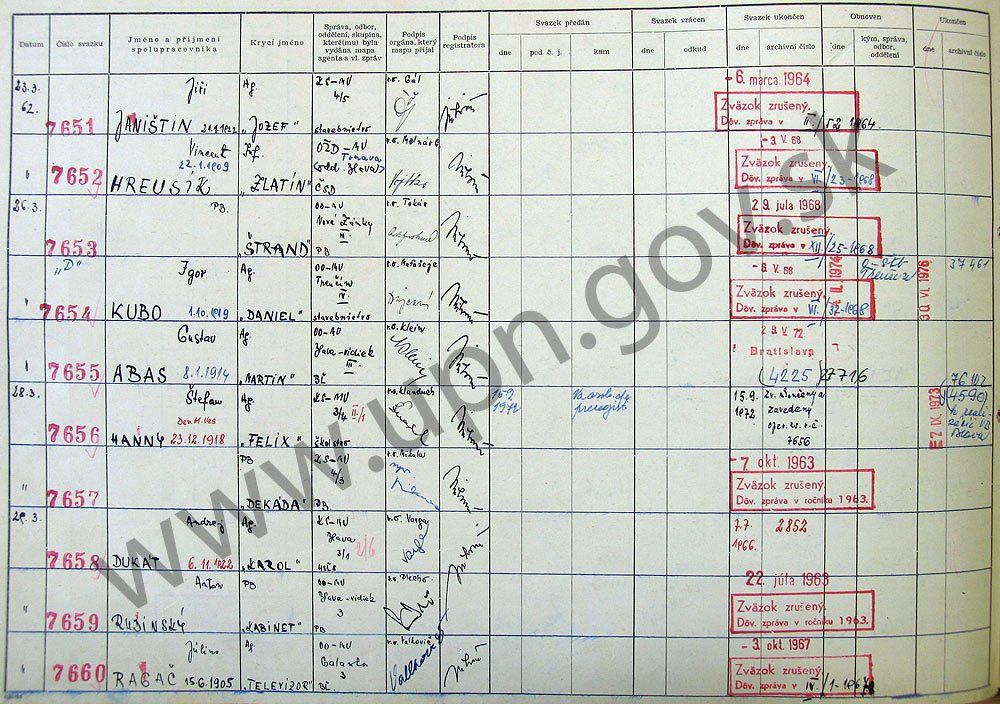 Datum
Číslo svazku
Jméno a příjmení spolupracovníka
Krycí jméno
Správa, odbor, oddělení, skupina, kterému(i) byla vydána mapa agenta a vl. zpráv
Podpis orgána, který mapu přijal
Podpis registratora
Svazek předán
dne
pod č. j.
kam
Svazek vrácen
dne
odkud
Svazek ukončen
dne
archivní číslo
Obnoven
dne
kým, správa, odbor, oddělení
Ukončen
dne
archivní číslo
23.3. 62.
7651
Jiří
JANIŠTIN
"JOZEF"
Ag.
KS-MV
4/5
stavebnictvo
r.o. Gál
-6. marca 1964
Zväzok zrušený.
Dôv. zpráva v II/52 1964.
"
7652
Vincent
22.1.1909
HREUSÍK
"ZLATÍN"
OŽD-MV
Trnava
ČSD
-3 V. 68
Zväzok zrušený.
Dôv. zpráva v VI./23-1968
26.3.
7653
PB.
"ŠTRAND"
OO-MV
Nové Zámky
PB
29. júla 1968
Zväzok zrušený.
Dôv. zpráva v XII/25-1968
"D"
"
7654
Igor
KUBO 1.10.1919
"DANIEL"
Ag.
OO-MV
Trenčín
IV.
stavebnictvo
-6 V. 68
Zväzok zrušený.
Dôv. zpráva v VI./32-1968
II. 1974
Trenčín
30 VI. 1976
37461
"
7655
Gustav
ABAS 8.1.1914
"MARTIN"
Ag.
OO-MV
Blava-vidiek
III.
r.o. Klein
29. V. 72
Bratislava
(4225) 27716
76102
28.3.
7656
Štefan
HANNY 23.12.1918
"FELIX"
Ag.
KS-MV
3/4 II/1
školstvo
15.9. 1972
15.9. 1972
Zv. ukončený a
zavedený
7656
IX. 1973
(4590)
"
7657
PB
"DEKÁDA"
KS-MV
4/3
PB
r.o. Mikula
-7 okt. 1963
Zväzok zrušený.
Dôv. zpráva v ročníku 1963.
29.3.
7658
Andrej
DUKÁT 6.11.1922
"KAROL"
Ag.
KS-MV
Blava
3/1
2/6
r.o. Varga
Varga
7.7. 1966.
2852
"
7659
Anton
RUBINSKÝ
"KABINET"
PB
OO-MV
Blava-vidiek
3
PB
22. júla 1963
Zväzok zrušený.
Dôv. zpráva v ročníku 1963.
"
7660
Július
RAGAČ 15.6.1905
"TELEVÍZOR"
Ag.
OO-MV
Galanta
3
BČ.
r.o. Valkovič
-3. okt. 1967
Zväzok zrušený.
Dôv. zpráva v IV./1-1967
www.upn.gov.sk